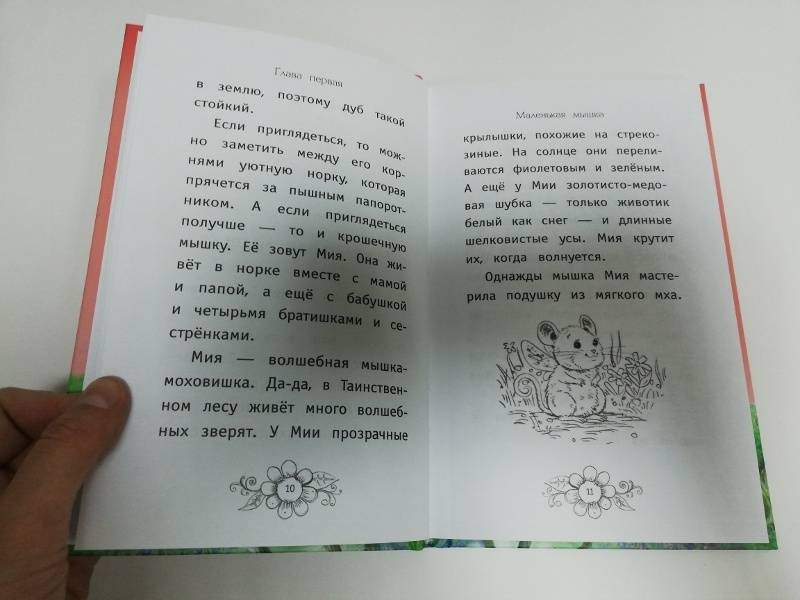 Глава первая
в землю, поэтому дуб такой
стойкий.
Если приглядеться, то мож-
но заметить между его кор-
нями уютную норку, которая
прячется за пышным папорот-
ником. А если приглядеться
получше — то и крошечную
мышку. Её зовут Мия. Она жи-
вёт в норке вместе с мамой
и папой, а ещё с бабушкой
и четырьмя братишками и се-
стрёнками.
Мия — волшебная мышка-
моховишка. Да-да, в Таинствен-
ном лесу живёт много волшеб-
ных зверят. У Мии прозрачные
10
Маленькая мышка
крылышки, похожие на стреко-
зиные. На солнце они перели-
ваются фиолетовым и зелёным.
А ещё у Мии золотисто-медо-
вая шубка — только животик
белый как снег — и длинные
шелковистые усы. Мия крутит
их, когда волнуется.
Однажды мышка Мия масте-
рила подушку из мягкого мха.
11